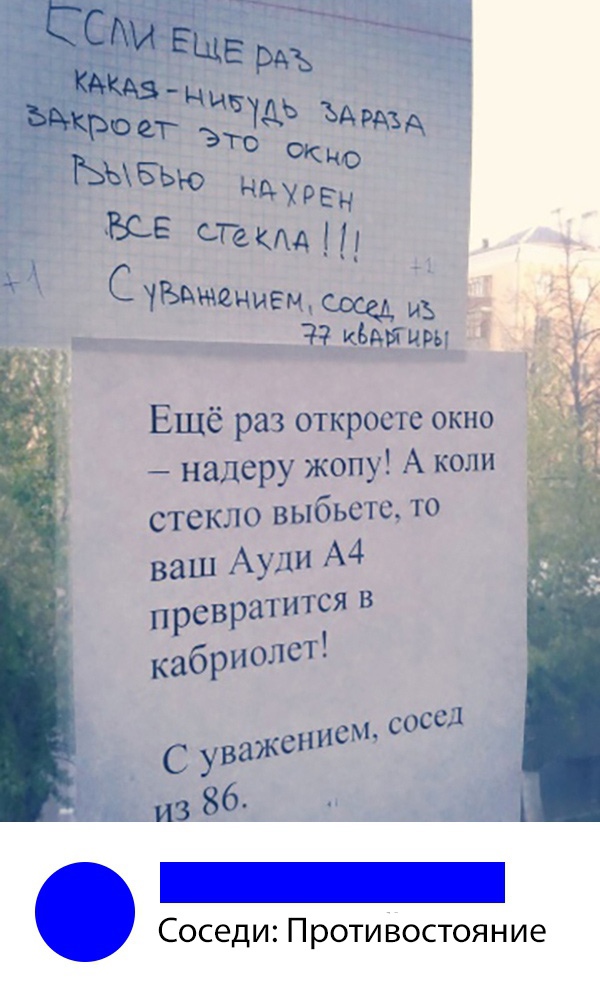 ЕСЛИ ЕЩЕ РАЗ
КАКАЯ-НИБУДЬ ЗАРАЗА
ЗАКРОЕТ ЭТО ОКНО
ВЫБЬЮ НАХРЕН
ВСЕ СТЕКЛА!!!
+1
+1
С УВАЖЕНИЕМ, СОСЕД ИЗ
77 КВАРТИРЫ
Ещё раз откроете окно
– надеру жопу! А коли
стекло выбьете, то
ваш Ауди А4
превратится в
кабриолет!
С уважением, сосед
из 86.
Соседи: Противостояние